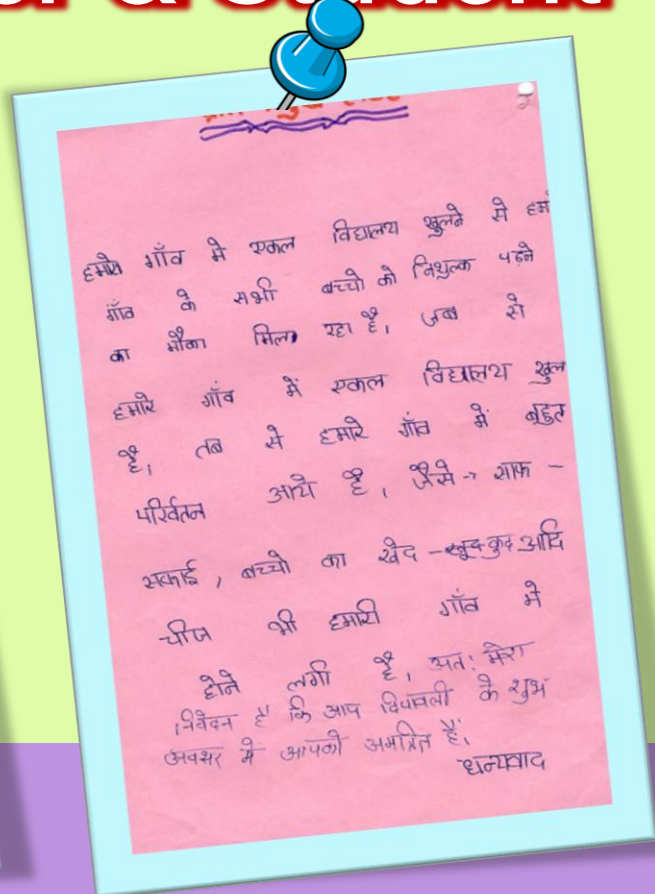 & Student
हमारे गाँव में एकल विद्यालय खुलने से हमा
गाँव के सभी बच्चो को निशुल्क पढ़ने
का मौका मिल रहा है, जब से
हमारे गाँव में एकल विद्यालय खुल
है, तब से हमारे गाँव में बहुत
परिर्वतन आये है, जैसे → साफ -
सफाई, बच्चो का खेद - खुदकुद आदि
चीज भी हमारी गाँव में
होने लगी है, अतः मेरा
निवेदन है कि आप दिपावली के शुभ
अवसर में आपको अमंत्रित हैं,
धन्यवाद